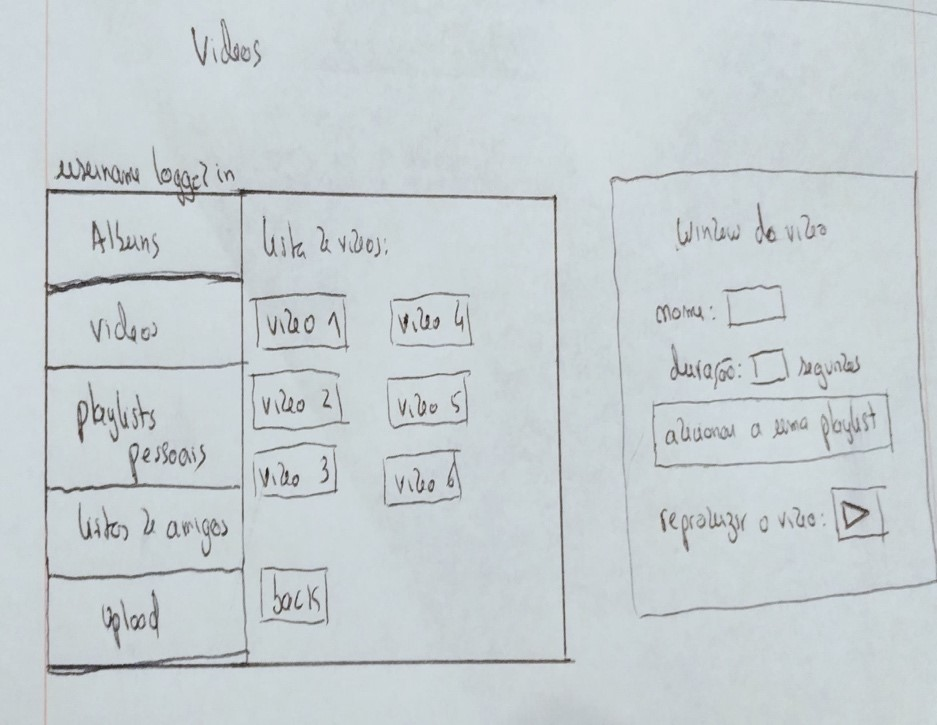 Videos
username logged in
Albuns
videos
playlists
pessoais
listas de amigos
Upload
lista de videos:
video 1
video 4
video 2
video 5
video 3
video 6
back
Window do video
nome:
duração: segundos
adicionar a uma playlist
reproduzir o video: